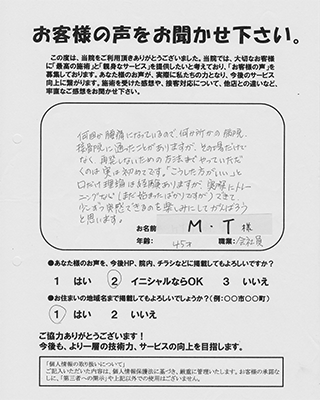 お客様の声をお聞かせ下さい。
この度は、当院をご利用頂きありがとうございました。当院では、大切なお客様
に「最高の施術」と「親身なサービス」を提供したいと考えており、「お客様の声」を
募集しております。あなた様のお声が、実際に私たちの力となり、今後のサービス
向上に繋がります。施術を受けた感想や、接客対応について、他店との違いなど、
率直なご感想をお聞かせ下さい。
何回か腰痛になっているので、何か所かの病院、
接骨院に通ったことがありますが、その場だけで
なく、再発しないための方法までやっていただ
くのは実は初めてです。「こうした方がいい」と
口だけ理論は経験ありますが、実際にトレー
ニングなど(まだ始まったばかりですが)できて
少しずつ実感できるのを楽しみにしてがんばろう
と思います。
お名前 M・T 様
年齢: 45才 職業: 会社員
●あなた様のお声を、今後HP、院内、チラシなどに掲載してもよろしいですか?
1 はい 2 イニシャルならOK 3 いいえ
●お住まいの地域名まで掲載してもよろしいでしょうか?(例:〇〇市〇〇町)
1 はい 2 いいえ
ご協力ありがとうございます!
今後も、より一層の技術力、サービスの向上を目指します。
「個人情報の取り扱いについて」
ご記入いただいた内容は、個人情報保護法に基づき、厳重に管理いたします。お客様の承諾なし
に、「第三者への開示」や上記以外での使用はございません。